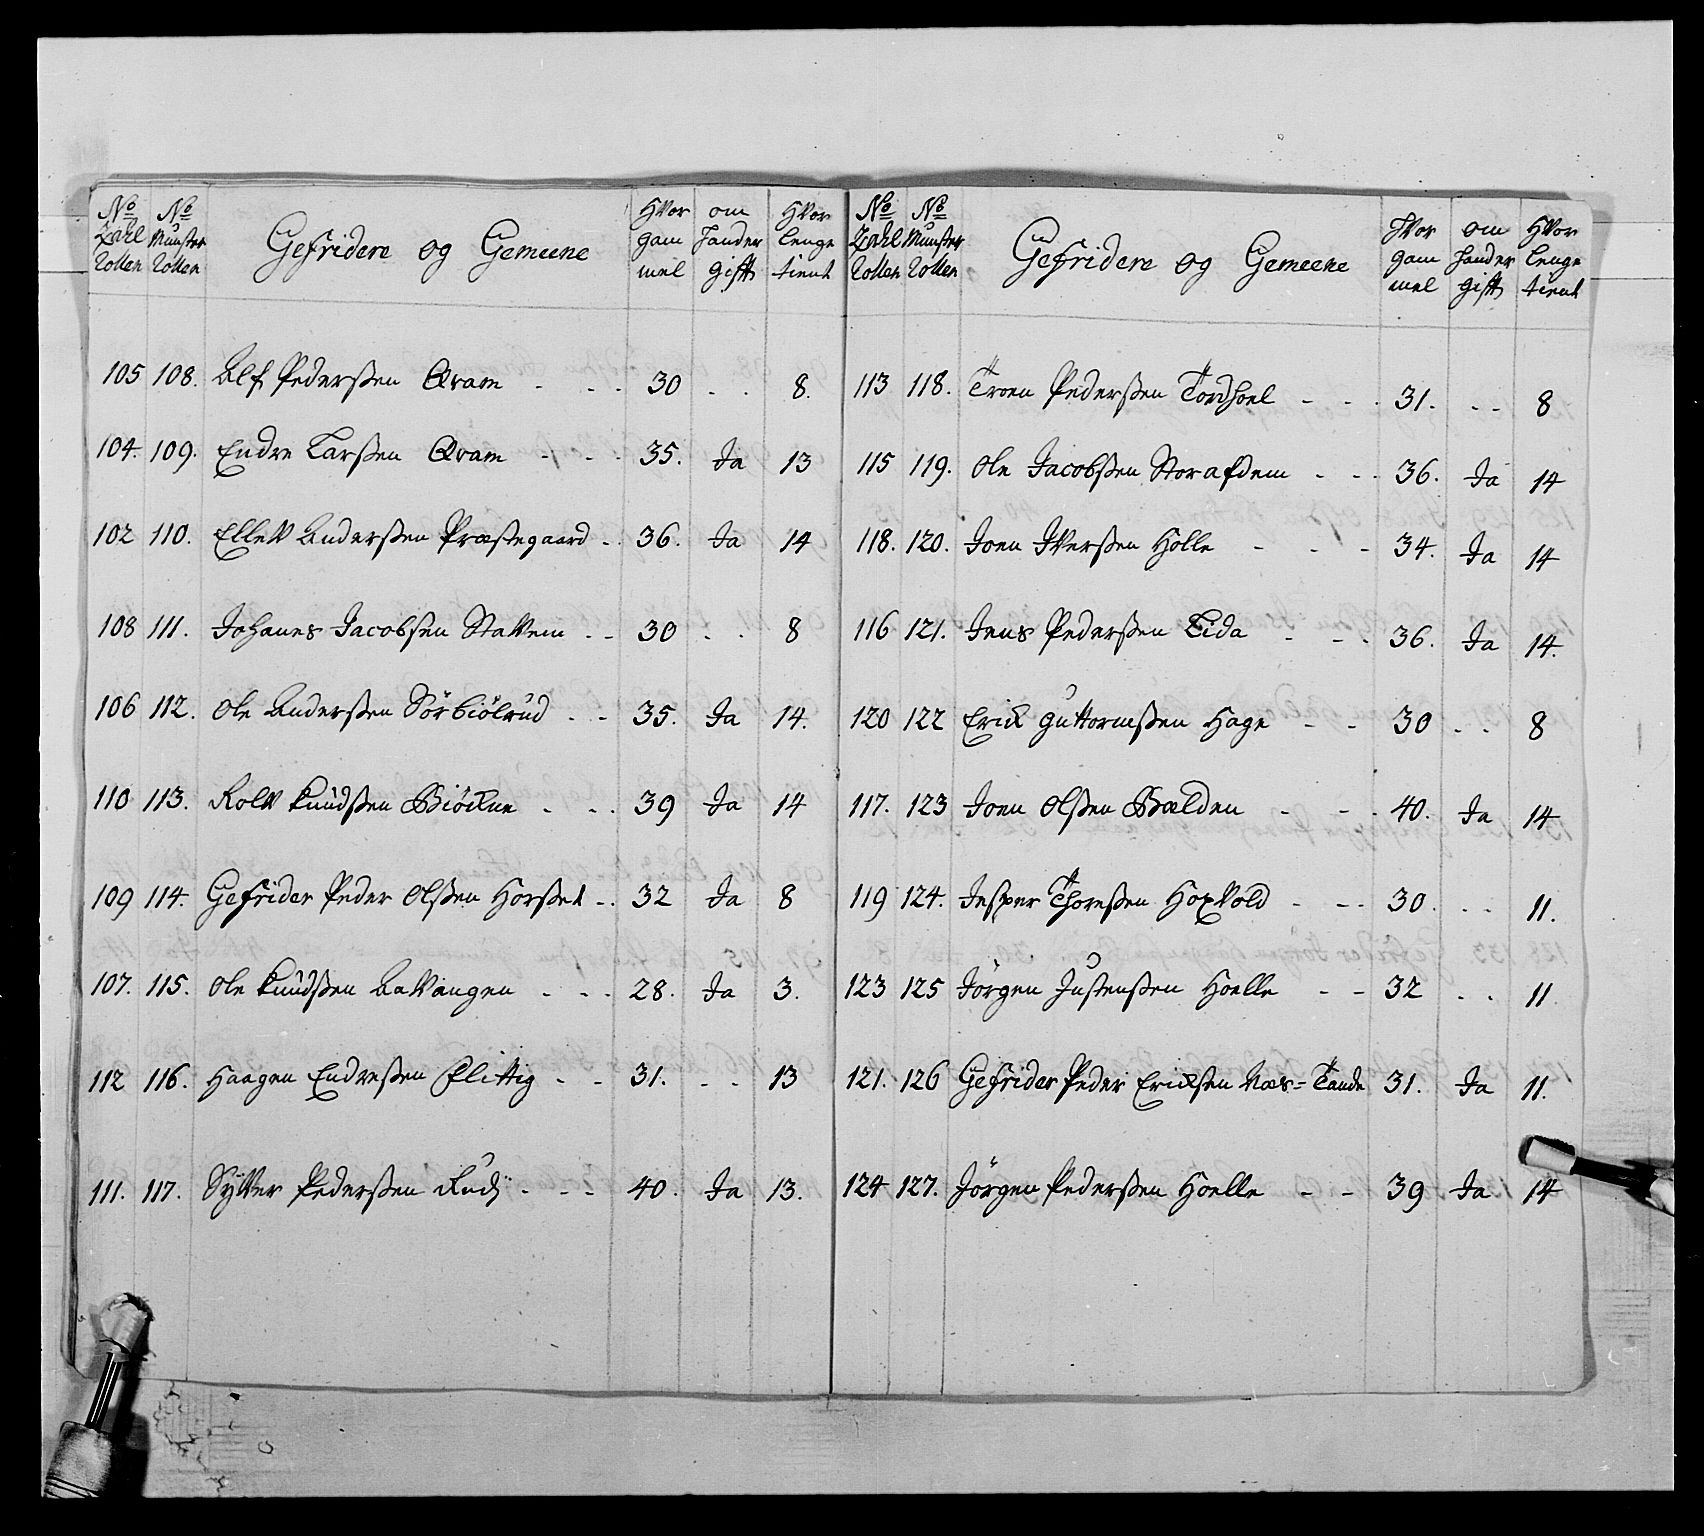 No Zahl Rollen | No Munster Rollen | Gefridere og Gemeene | Hvor gam mel | om hand er gift | Hvor lenge tient
105 108. Alf Pederßen Qvam - - - 30 - - 8.
104. 109. Endre Larßen Qvam - - - 35. Ja 13
102 110. Ellev Anderßen Præstegaard - - 36. Ja 14
108 111. Johanes Jacobsen Stavem - - 30 - - 8
106 112. Ole Anderßen Sörbiölrud - - 35. Ja 14.
110 113. Rolv Knudßen Biöckne - - - 39 Ja 14
109 114. Gefrider Peder Olßen Horßet - - 32 Ja 8
107. 115. Ole Knudßen Aavangen - - - 28. Ja 3.
112 116. Haagen Endreßen Plittig - - 31. - - 13
111. 117. Syver Pederßen Rudj - - - 40. Ja 13.
No Zahl Rollen | No Munster Rollen | Gefridere og Gemeene | Hvor gam mel | om hand er gift | Hvor lenge tient
113 118. Troen Pederßen Tordhoel - - - 31. - - 8
115 119. Ole Jacobßen Storafdem - - - 36. Ja 14
118. 120. Joen Iverßen Holle - - - 34. Ja 14
116 121. Jens Pederßen Lida - - - 36. Ja 14.
120 122 Erick Guttormßen Hage - - 30 - - 8
117. 123 Joen Olßen Bælden - - - 40. Ja 14
119 124. Jesper Thoreßen Hoxvold - - - 30. - - 11.
123 125 Jörgen Justenßen Hoelle - - 32 - - 11
121. 126 Gefrider Peder Ericksen Næs=Tande 31. Ja 11.
124 127. Jörgen Pederßen Hoelle - - 39 Ja 14